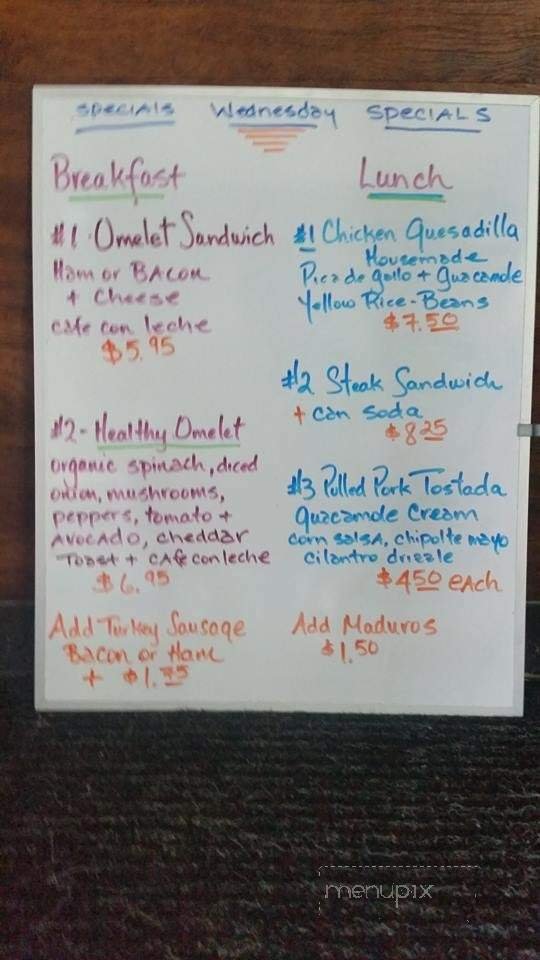 SPECIALS Wednesday SPECIALS
Breakfast
#1 Omelet Sandwich
Ham or BACON
+ Cheese
cafe con leche
$5.95
#2 - Healthy Omelet
organic spinach, diced
onion, mushrooms,
peppers, tomato +
AVOCADO, cheddar
Toast + CAfe con leche
$6.95
Add Turkey Sausage
Bacon or Ham
+ $1.
Lunch
#1 Chicken Quesadilla
Housemade
Pico de gallo + Guacamole
Yellow Rice - Beans
$7.50
#2 Steak Sandwich
+ can soda
$8.25
#3 Pulled Pork Tostada
Guacamole Cream
corn salsa, chipolte mayo
cilantro driezle
$4.50 eAch
Add Maduros
$1.50
menupix